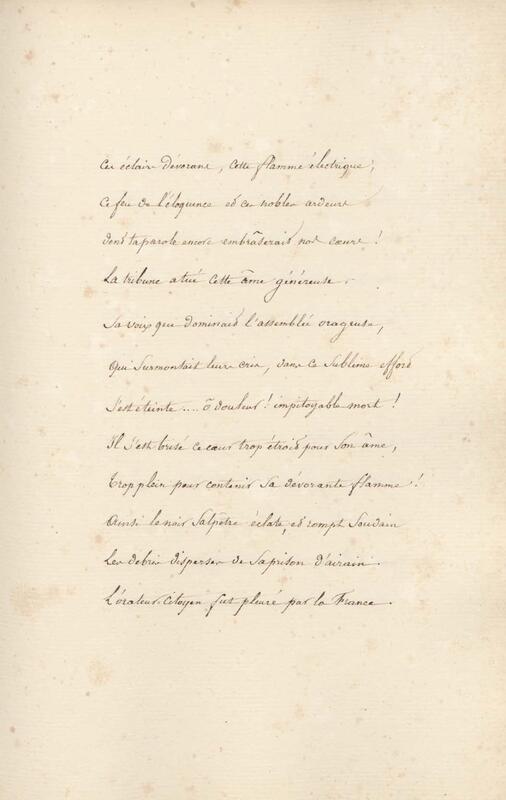 Ces éclairs dévorans, cette flamme électrique,
Ce feu de l'éloquence et ces nobles ardeurs
dont ta parole encore embrâserait nos cœurs !
La tribune a tué cette âme généreuse.
Sa voix que dominait l'assemblée orageuse,
Qui surmontait leurs cris, dans ce sublime effort
S'est éteinte .... ô douleur ! impitoyable mort !
Il s'est brisé ce cœur trop étroit pour son âme,
Trop plein pour contenir sa dévorante flamme !
Ainsi le noir salpêtre éclate, et rompt soudain
Les débris dispersés de sa prison d'airain.
L'orateur-citoyen fut pleuré par la France.